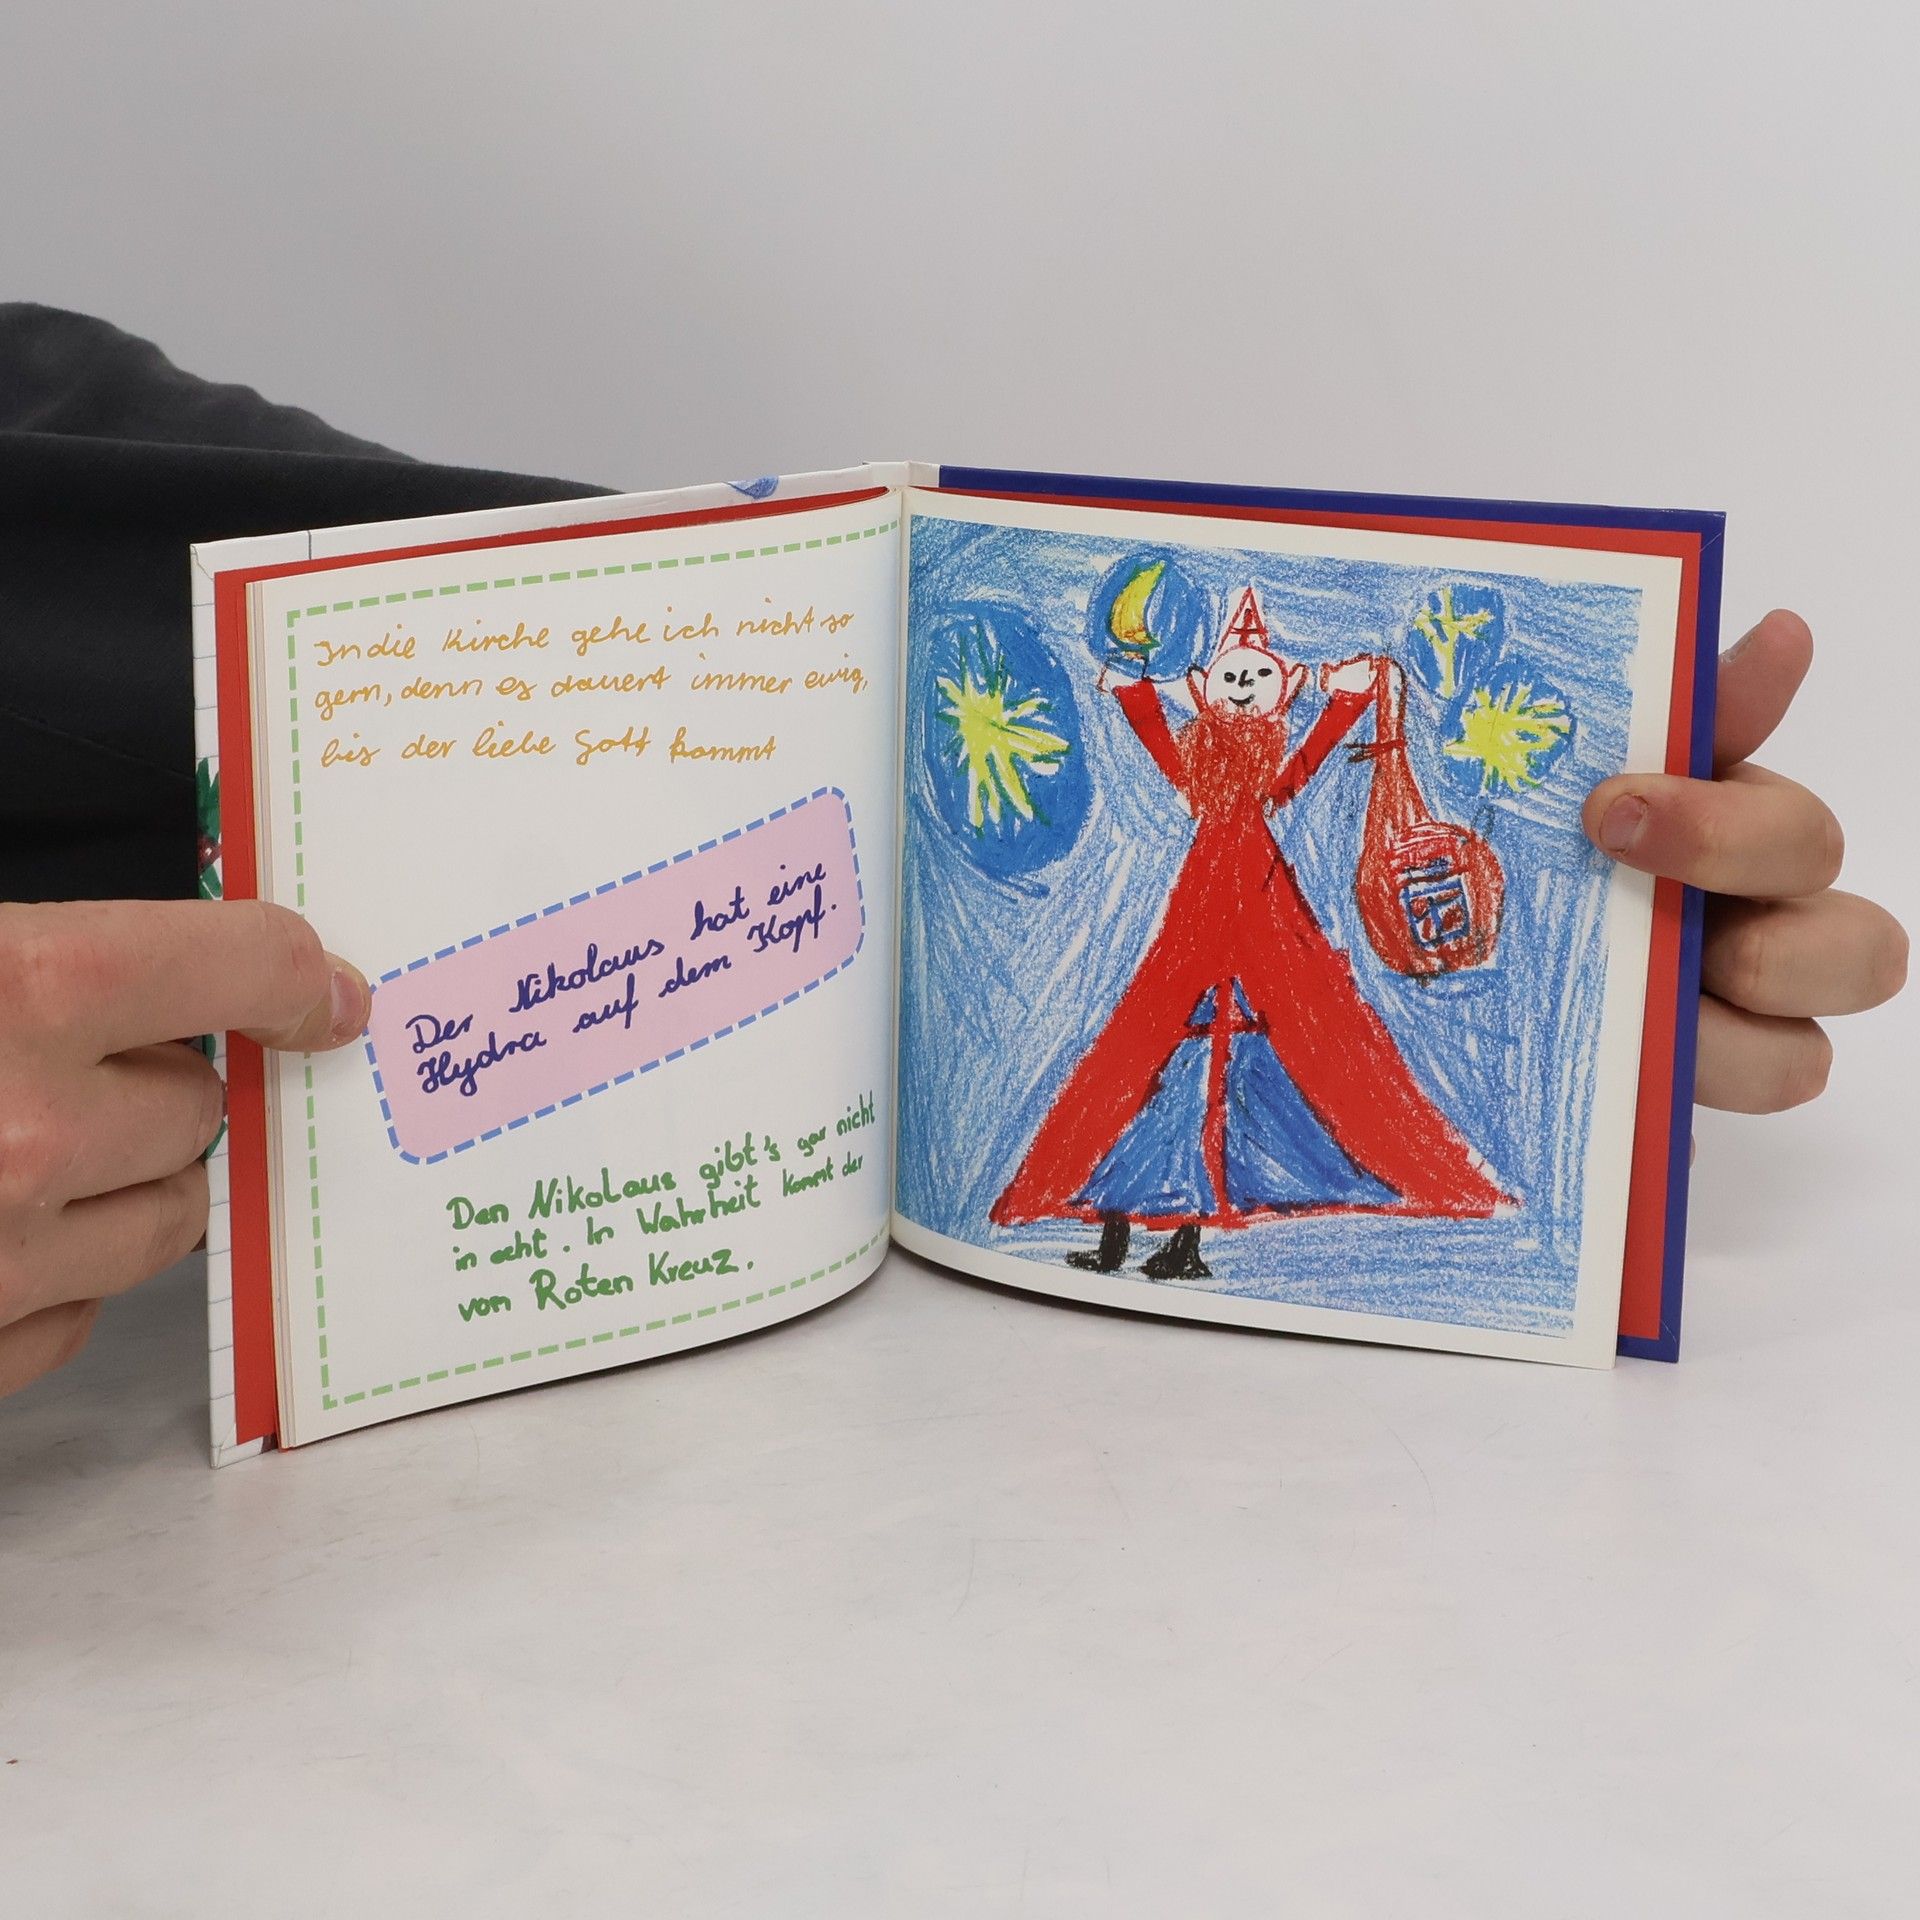 In die Kirche gehe ich nicht so
gern, denn es dauert immer ewig,
bis der liebe Gott kommt
Der Nikolaus hat eine
Hydra auf dem Kopf.
Den Nikolaus gibt's gar nicht
in echt. In Wahrheit kommt der
vom Roten Kreuz.